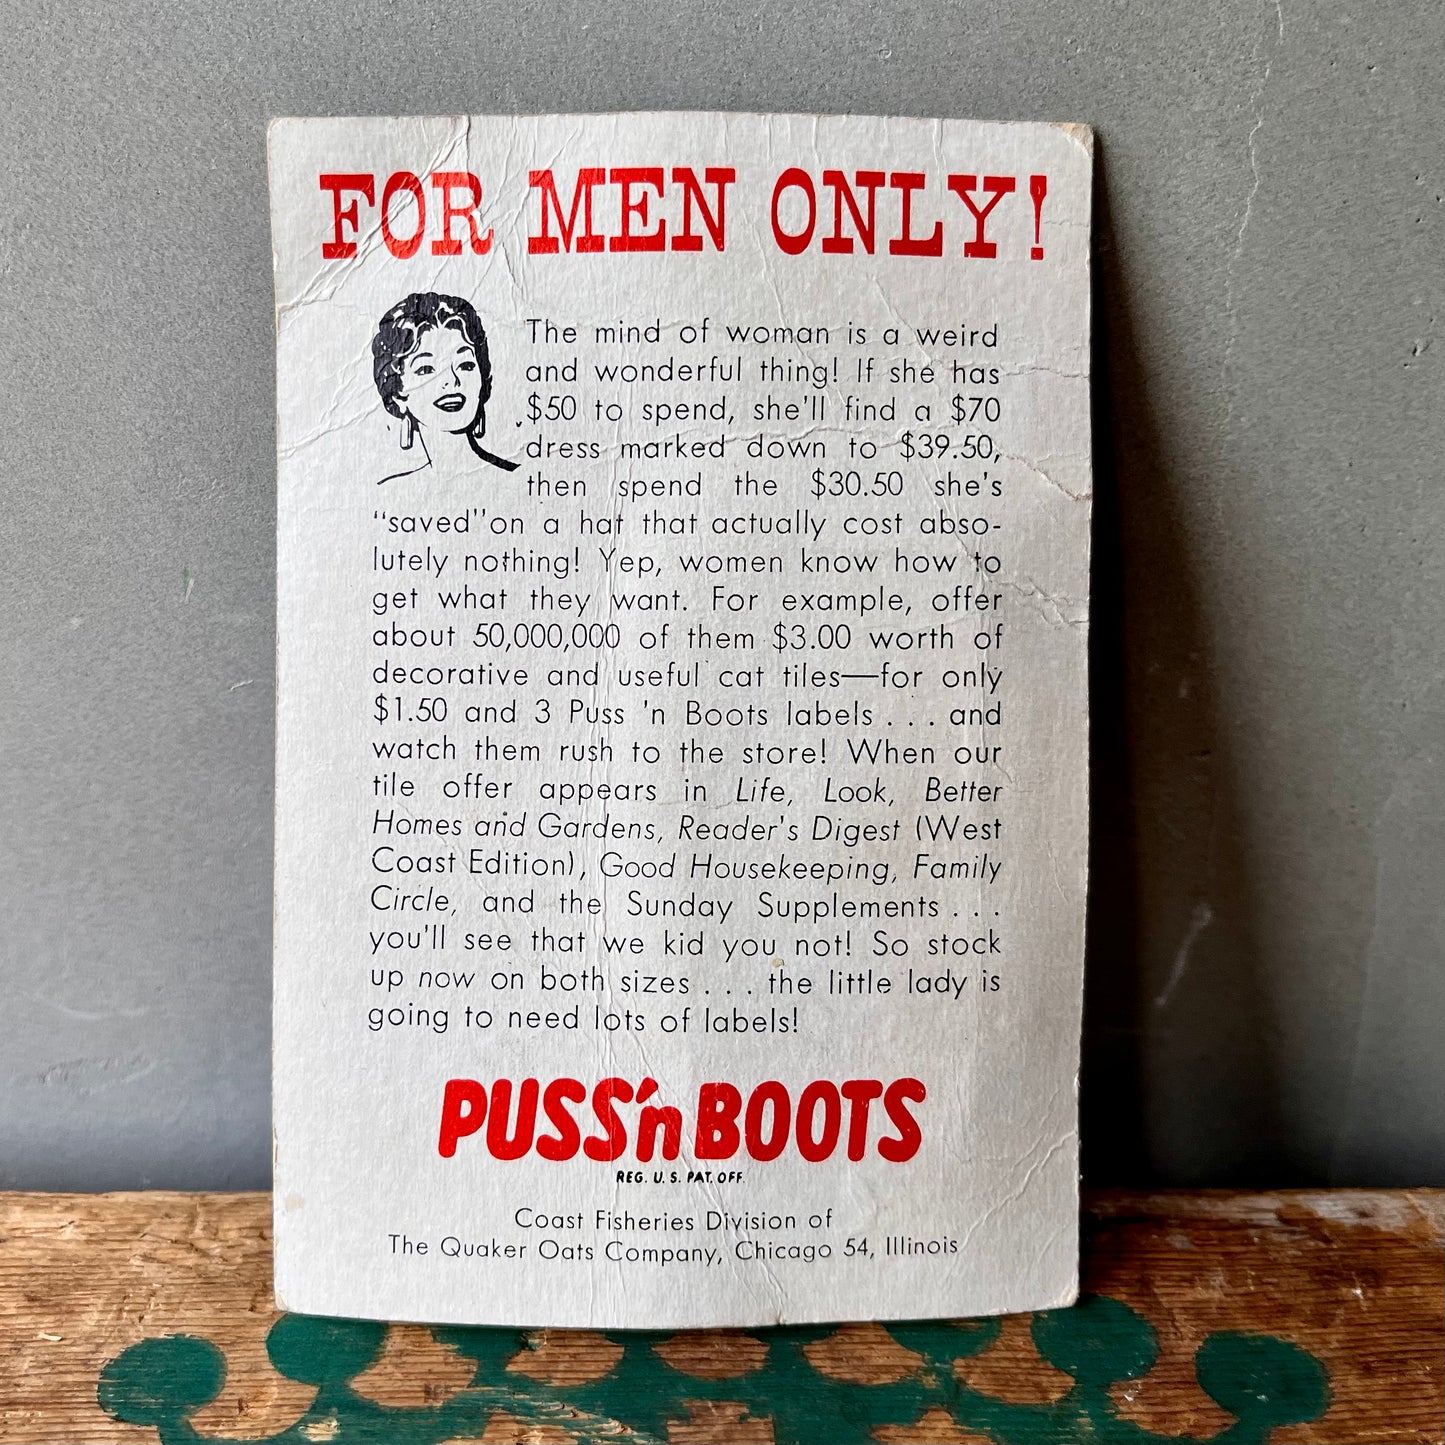 FOR MEN ONLY!
The mind of woman is a weird
and wonderful thing! If she has
$50 to spend, she'll find a $70
dress marked down to $39.50,
then spend the $30.50 she's
"saved"on a hat that actually cost abso-
lutely nothing! Yep, women know how to
get what they want. For example, offer
about 50,000,000 of them $3.00 worth of
decorative and useful cat tiles—for only
$1.50 and 3 Puss 'n Boots labels . . . and
watch them rush to the store! When our
tile offer appears in Life, Look, Better
Homes and Gardens, Reader's Digest (West
Coast Edition), Good Housekeeping, Family
Circle, and the Sunday Supplements . . .
you'll see that we kid you not! So stock
up now on both sizes . . . the little lady is
going to need lots of labels!
PUSS'n BOOTS
REG. U. S. PAT. OFF.
Coast Fisheries Division of
The Quaker Oats Company, Chicago 54, Illinois